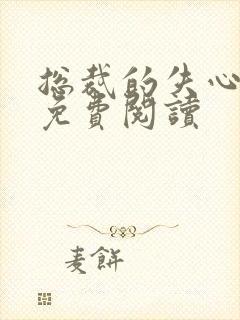 總裁的失心
免費閱讀
麦餅